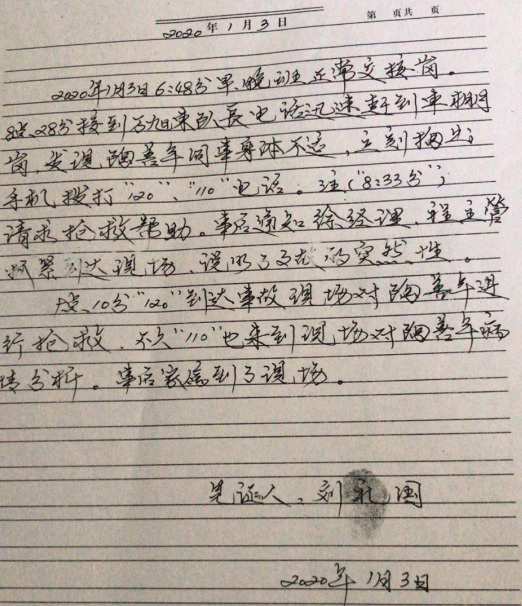 第 页共 页
2020年1月3日
2020年1月3日6:48分早、晚班正常交接岗。
8点28分接到 队长电话迅速赶到车棚
岗,发现陶善年同事身体不适,立刻掏出
手机,拨打"120"、"110"电话。注("8:33分")
请求抢救帮助。事后通知徐经理、程主管
到达现场,说明了事故的突然性。
点10分"120"到达事故现场对陶善年进
行抢救,不久"110"也来到现场对陶善年病
情分析。事后家属到了现场。
见证人:刘礼国
2020年1月3日